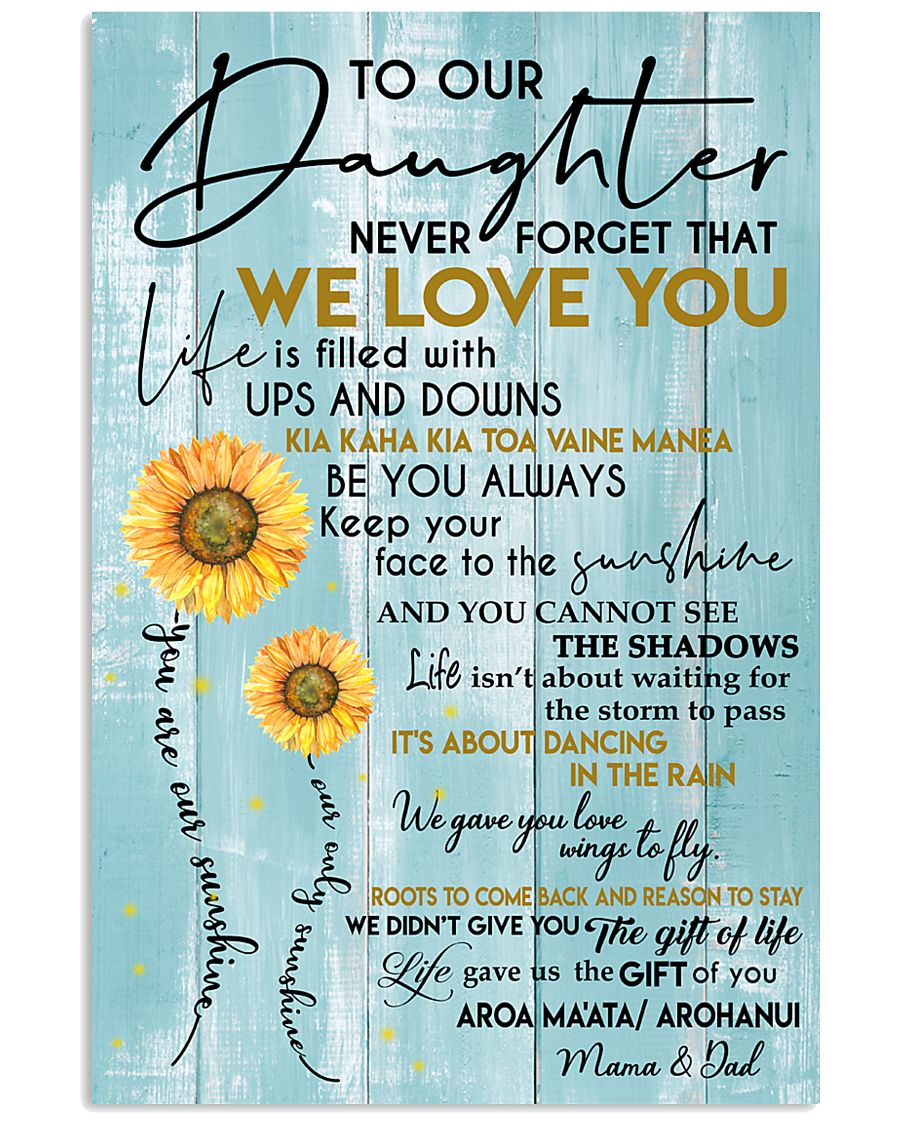 TO OUR
Daughter
NEVER FORGET THAT
WE LOVE YOU
Life is filled with
UPS AND DOWNS
KIA KAHA KIA TOA VAINE MANEA
BE YOU ALWAYS
Keep your
face to the sunshine
AND YOU CANNOT SEE
THE SHADOWS
Life isn't about waiting for
the storm to pass
IT'S ABOUT DANCING
IN THE RAIN
We gave you love
wings to fly.
ROOTS TO COME BACK AND REASON TO STAY
WE DIDN'T GIVE YOU The gift of life
Life gave us the GIFT of you
AROA MA'ATA/ AROHANUI
Mama & Dad
you are our sunshine
our only sunshine